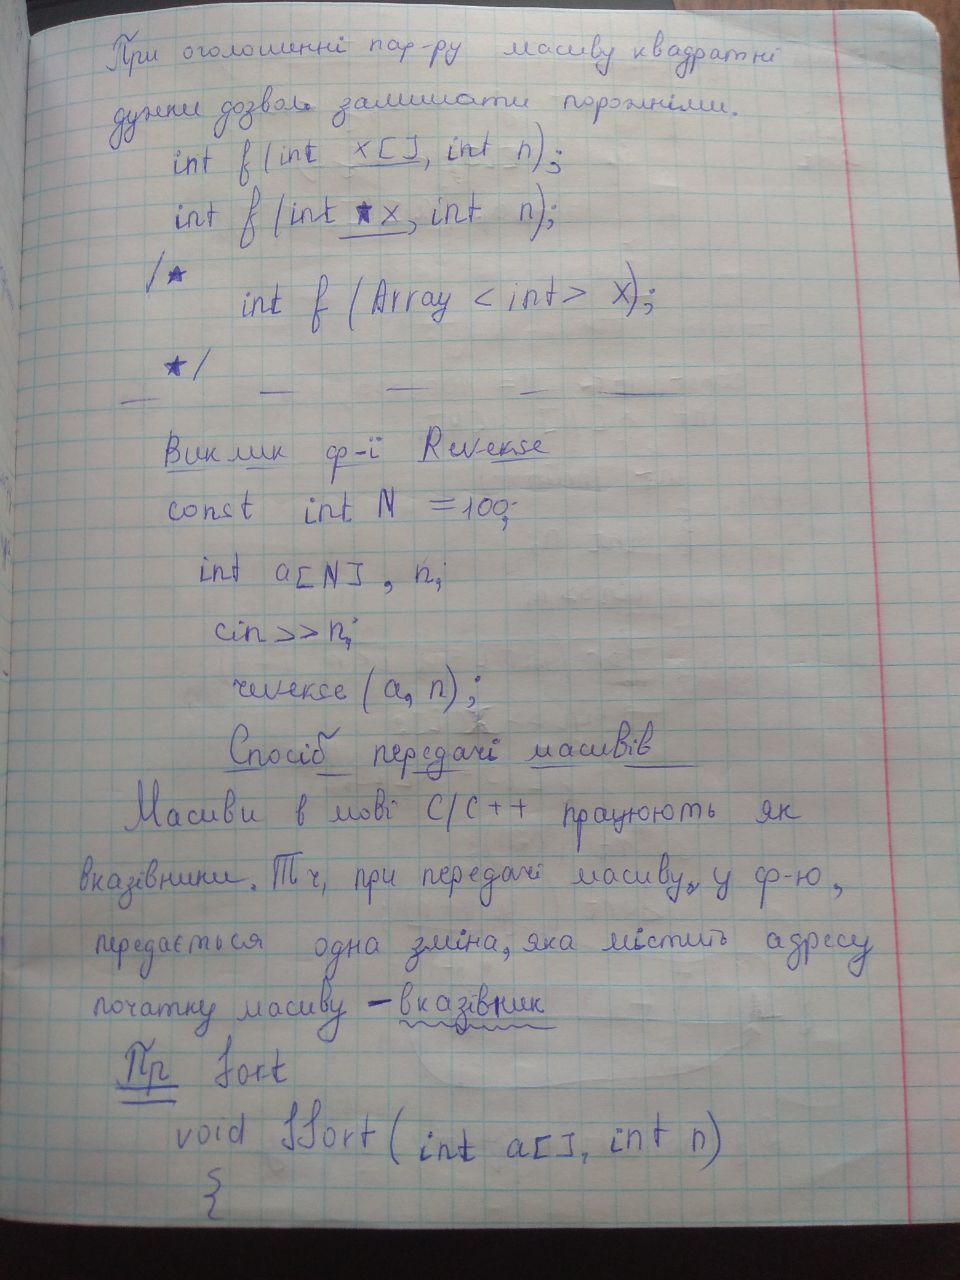 При оголошенні пар-ру масиву квадратні
дужки дозвол. залишати порожніми.
int f(int x[], int n);
int f(int *x, int n);
/*
int f (Array < int > X);
*/
Виклик ф-ії Reverse
const int N = 100;
int a[N], n;
cin >> n;
reverse (a, n);
Спосіб передачі масивів
Масиви в мові C/C++ працюють як
вказівники. Тч, при передачі масиву, у ф-ю,
передається одна зміна, яка містить адресу
початку масиву – вказівник
Пр Sort
void SSort( int a[], int n)
{